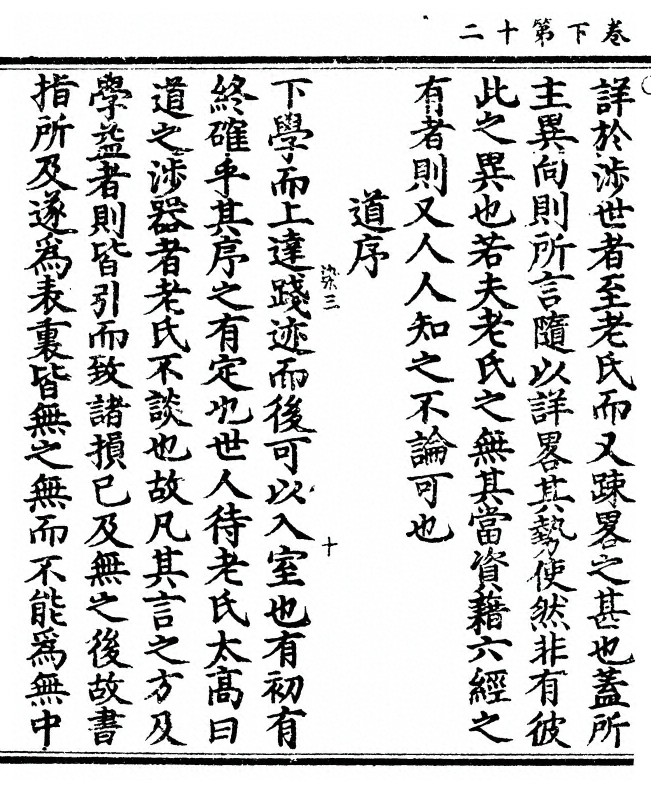 卷下第十二
詳於涉世者至老氏而又踈畧之甚也蓋所
主異向則所言隨以詳畧其勢使然非有彼
此之異也若夫老氏之無其當資藉六經之
有者則又人人知之不論可也
道序
染三
十
下學而上達踐迹而後可以入室也有初有
終確乎其序之有定也世人待老氏太高曰
道之涉器者老氏不談也故凡其言之方及
學益者則皆引而致諸損已及無之後故書
指所及遂爲表裏皆無之無而不能爲無中